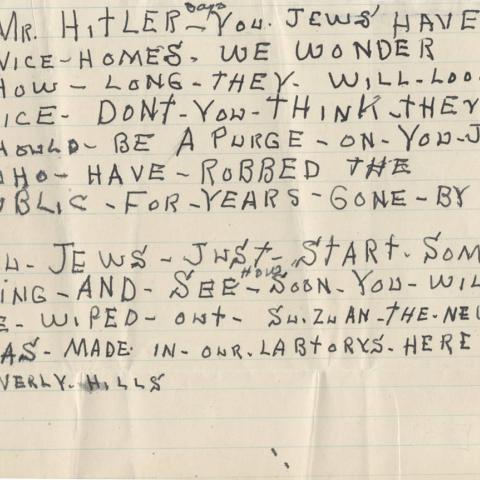 MR. HITLER - says YOU. JEWS HAVE
NICE-HOMES. WE WONDER
HOW - LONG - THEY. WILL - LOO
ICE - DONT - YOU - THINK - THEY
HOULD - BE A PURGE - ON - YOU - J
HO - HAVE - ROBBED THE
UBLIC - FOR - YEARS - GONE - BY
U - JEWS - JUST - START. SOM
ING - AND - SEE - HOW SOON - YOU - WIL
E - WIPED - OUT - SU.ZUAN - THE. NEW
AS - MADE IN - OUR. LABTORYS. HERE
VERLY. HILLS